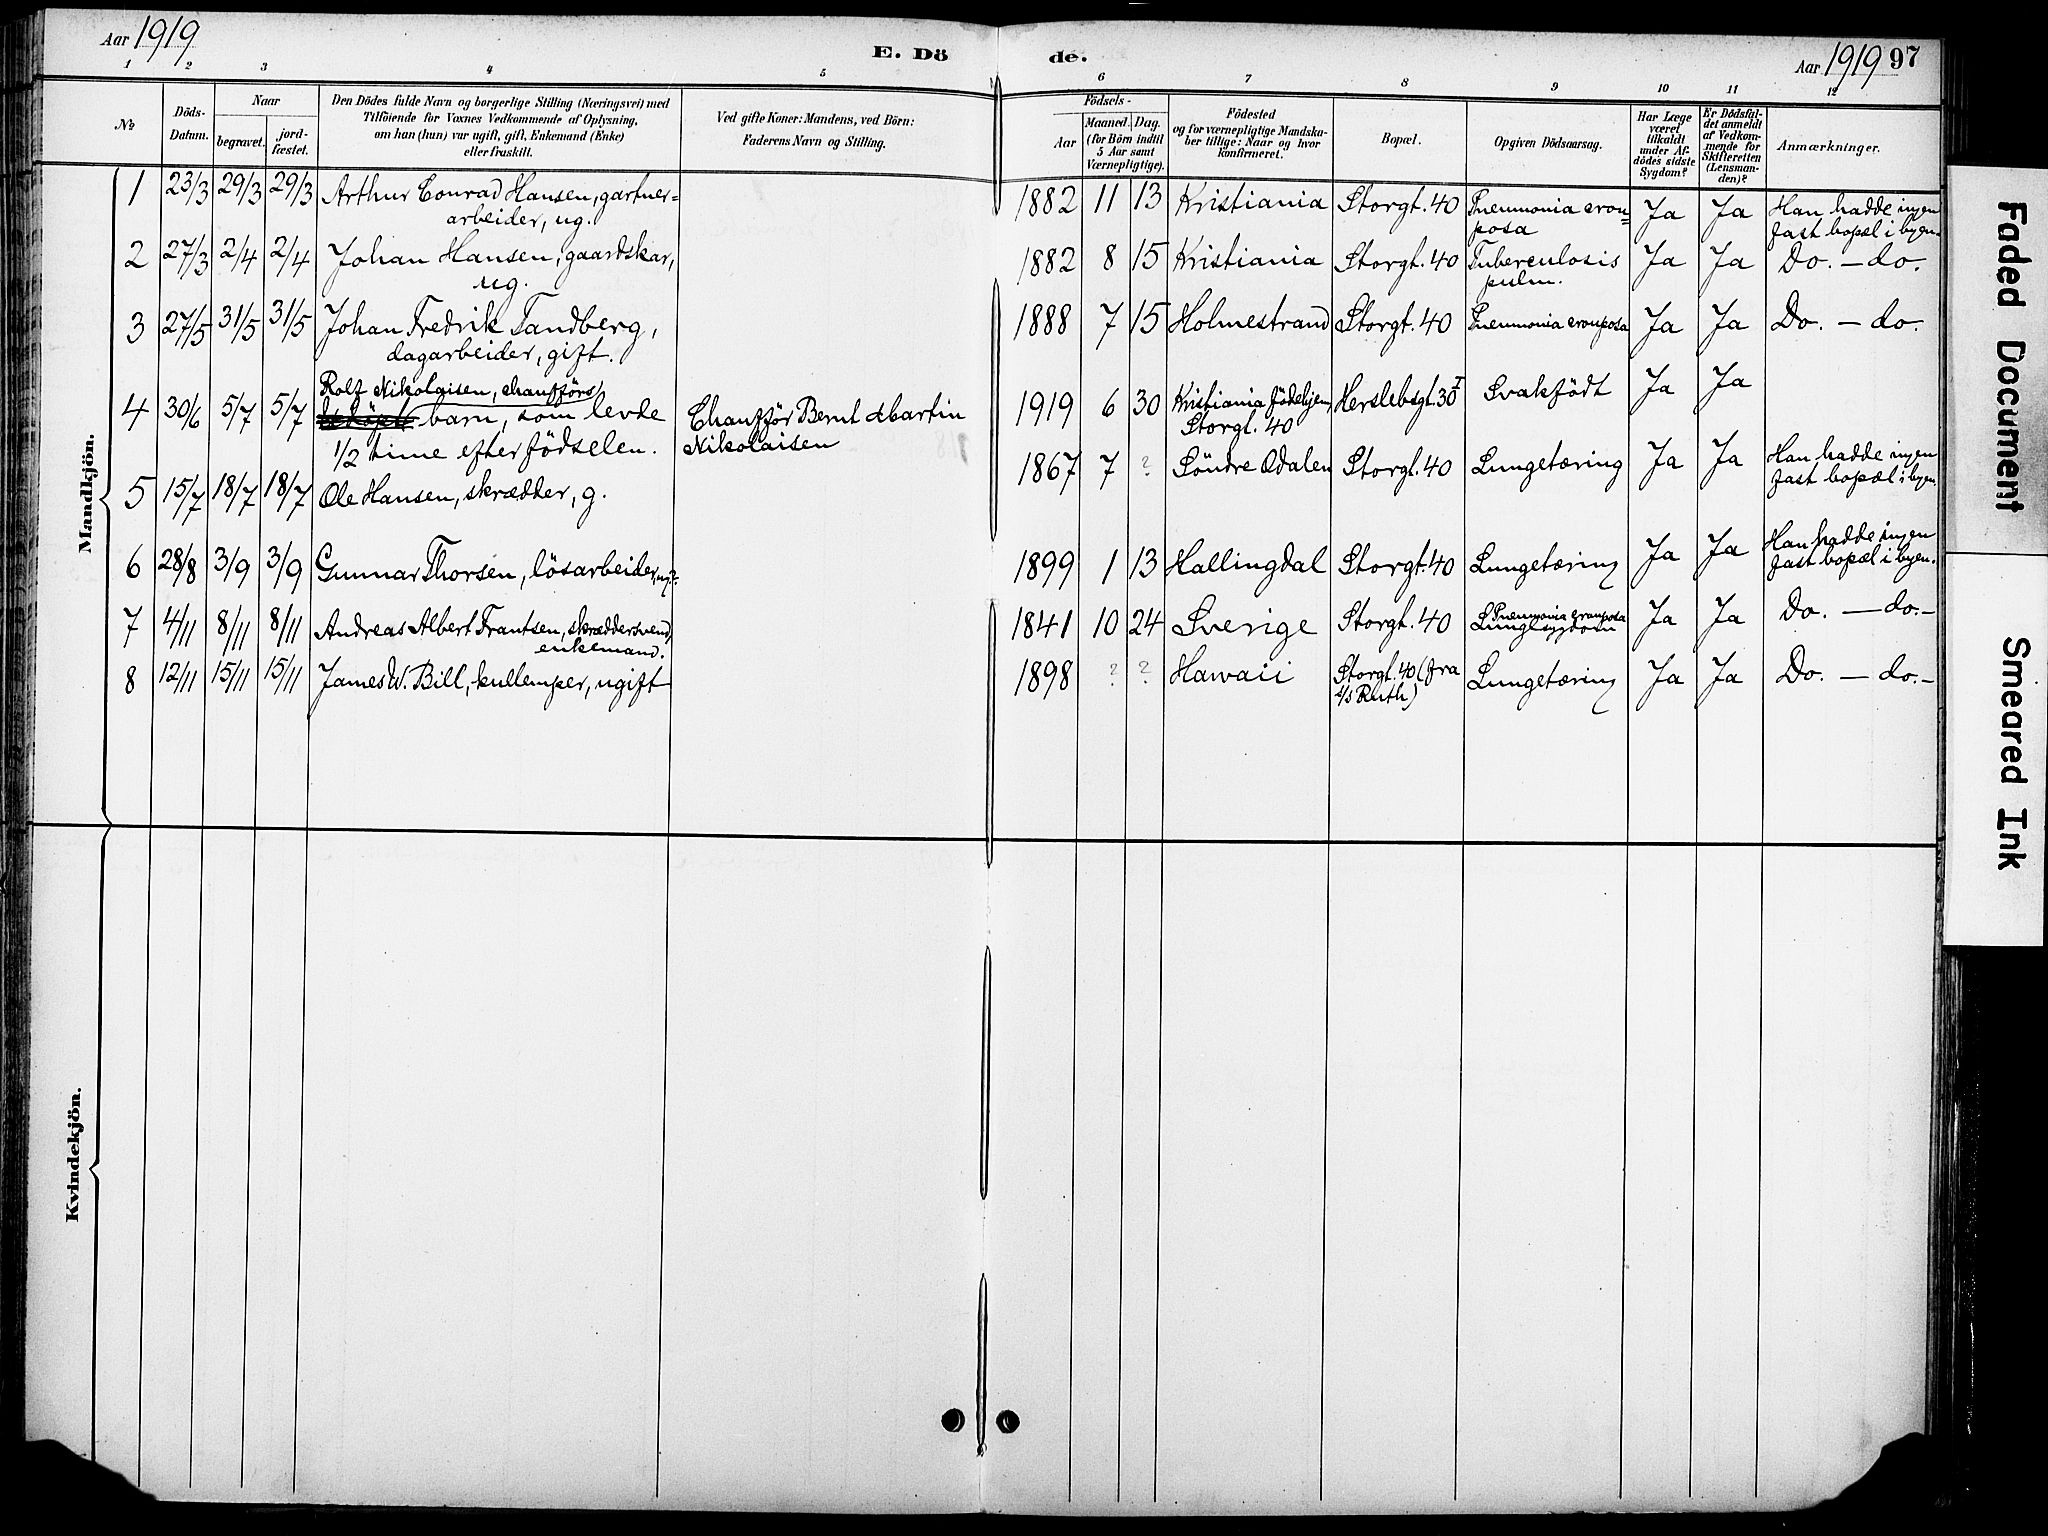 Aar 1919
E. Dö
de.
Aar 1919 97
1 2 3 4 5 6 7 8 9 10 11 12
№
Döds-
Datum.
Naar
begravet.
jord-
fæstet.
Den Dödes fulde Navn og borgerlige Stilling (Næringsvei) med
Tilföiende for Voxnes Vedkommende af Oplysning,
om han (hun) var ugift, gift, Enkemand (Enke)
eller fraskilt.
Ved gifte Koner: Mandens, ved Börn:
Faderens Navn og Stilling.
Födsels-
Aar
Maaned. Dag.
(for Börn indtil
5 Aar samt
Værnepligtige).
Födested
og for værnepligtige Mandska-
ber tillige: Naar og hvor
konfirmeret.
Bopæl.
Opgiven Dödsaarsag.
Har Læge
været
tilkaldt
under Af-
dödes sidste
Sygdom?
Er Dödsfal-
det anmeldt
af Vedkom-
mende for
Skifteretten
(Lensman-
den)?
Anmærkninger.
Mandkjön.
1 23/3 29/3 29/3 Arthur Conrad Hansen, gartner=
arbeider, ug.
1882 11 13 Kristiania Storgt. 40 Pneumonia crou=
posa
Ja Ja Han hadde ingen
fast bopæl i byen.
2 27/3 2/4 2/4 Johan Hansen, gaardskar,
ug.
1882 8 15 Kristiania Storgt. 40 Tuberculosis
pulm.
Ja Ja Do. — do.
3 27/5 31/5 31/5 Johan Fredrik Tandberg,
dagarbeider, gift.
1888 7 15 Holmestrand Storgt. 40 Pneumonia crouposa Ja Ja Do. — do.
Rolf Nikolaisen, chaufförs
4 30/6 5/7 5/7 barn, som levde
1/2 time efter födselen.
Chaufför Bernt Martin
Nikolaisen
1919 6 30 Kristiania födehjem,
Storgt. 40
Herslebsgt. 30 I Svakfödt Ja Ja
5 15/7 18/7 18/7 Ole Hansen, skrædder, g.
1867 7 ? Söndre Odalen Storgt. 40 Lungetæring Ja Ja Han hadde ingen
fast bopæl i byen.
6 28/8 3/9 3/9 Gunnar Thorsen, lösarbeider, ug?.
1899 1 13 Hallingdal Storgt. 40 Lungetæring Ja Ja Han hadde ingen
fast bopæl i byen.
7 4/11 8/11 8/11 Andreas Albert Frantsen, skræddersvend,
enkemand.
1841 10 24 Sverige Storgt. 40 Pneumonia crouposa
Lungesygdom
Ja Ja Do. — do. —
8 12/11 15/11 15/11 James W. Bill, kullemper, ugift
1898 ? ? Hawaii Storgt. 40 (fra
s/s Ruth)
Lungetæring Ja Ja Do. — do. —
Kvindekjön.
Faded Document
Smeared Ink